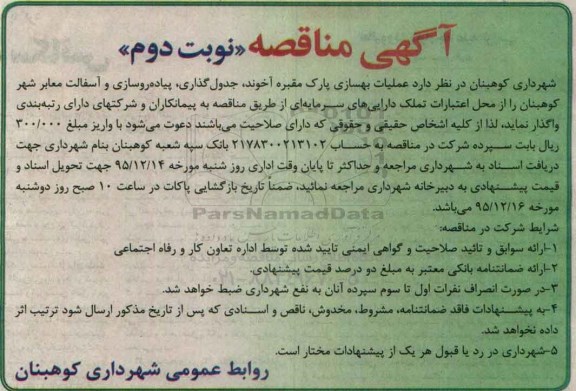 آگهی مناقصه «نوبت دوم»
شهرداری کوهبنان در نظر دارد عملیات بهسازی پارک مقبره آخوند، جدول‌گذاری، پیاده‌روسازی و آسفالت معابر شهر
کوهبنان را از محل اعتبارات تملک دارایی‌های سرمایه‌ای از طریق مناقصه به پیمانکاران و شرکتهای دارای رتبه‌بندی
واگذار نماید، لذا از کلیه اشخاص حقیقی و حقوقی که دارای صلاحیت می‌باشند دعوت می‌شود با واریز مبلغ ۳۰۰/۰۰۰
ریال بابت سپرده شرکت در مناقصه به حساب ۲۱۷۸۳۰۰۲۱۳۱۰۲ بانک سپه شعبه کوهبنان بنام شهرداری جهت
دریافت اسناد به شهرداری مراجعه و حداکثر تا پایان وقت اداری روز شنبه مورخه ۹۵/۱۲/۱۴ جهت تحویل اسناد و
قیمت پیشنهادی به دبیرخانه شهرداری مراجعه نمائید، ضمناً تاریخ بازگشایی پاکات در ساعت ۱۰ صبح روز دوشنبه
مورخه ۹۵/۱۲/۱۶ می‌باشد.
ParsNamadData
شرایط شرکت در مناقصه:
۱-ارائه سوابق و تائید صلاحیت و گواهی ایمنی تایید شده توسط اداره تعاون کار و رفاه اجتماعی
۲-ارائه ضمانتنامه بانکی معتبر به مبلغ دو درصد قیمت پیشنهادی.
۳-در صورت انصراف نفرات اول تا سوم سپرده آنان به نفع شهرداری ضبط خواهد شد.
۴-به پیشنهادات فاقد ضمانتنامه، مشروط، مخدوش، ناقص و اسنادی که پس از تاریخ مذکور ارسال شود ترتیب اثر
داده نخواهد شد.
۵-شهرداری در رد یا قبول هر یک از پیشنهادات مختار است.
روابط عمومی شهرداری کوهبنان